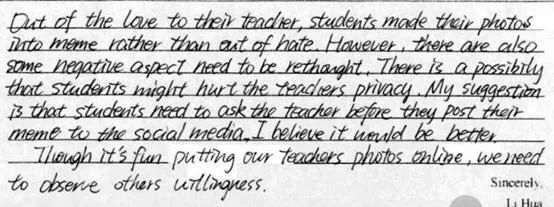 Out of the love to their teacher, students made their photos
into meme rather than out of hate. However, there are also
some negative aspect need to be rethought. There is a possibily
that students might hurt the teachers privacy. My suggestion
is that students need to ask the teacher before they post their
meme to the social media, I believe it would be better.
Though it's fun putting our teachers photos online, we need
to observe others willingness.
Sincerely,
Li Hua